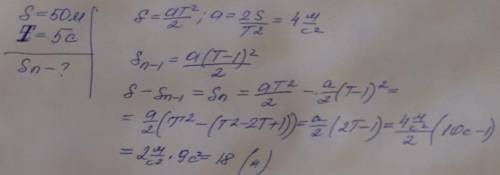 S = 50м
T = 5с
Sn - ?
S = aT²/2 ; a = 2S/T² = 4 м/с²
Sn-1 = a(T-1)²/2
S - Sn-1 = Sn = aT²/2 - a/2 (T-1)² =
= a/2 (T² - (T² - 2T + 1)) = a/2 (2T - 1) = 4 м/с² / 2 (10с - 1)
= 2 м/с² · 9с² = 18 (м)